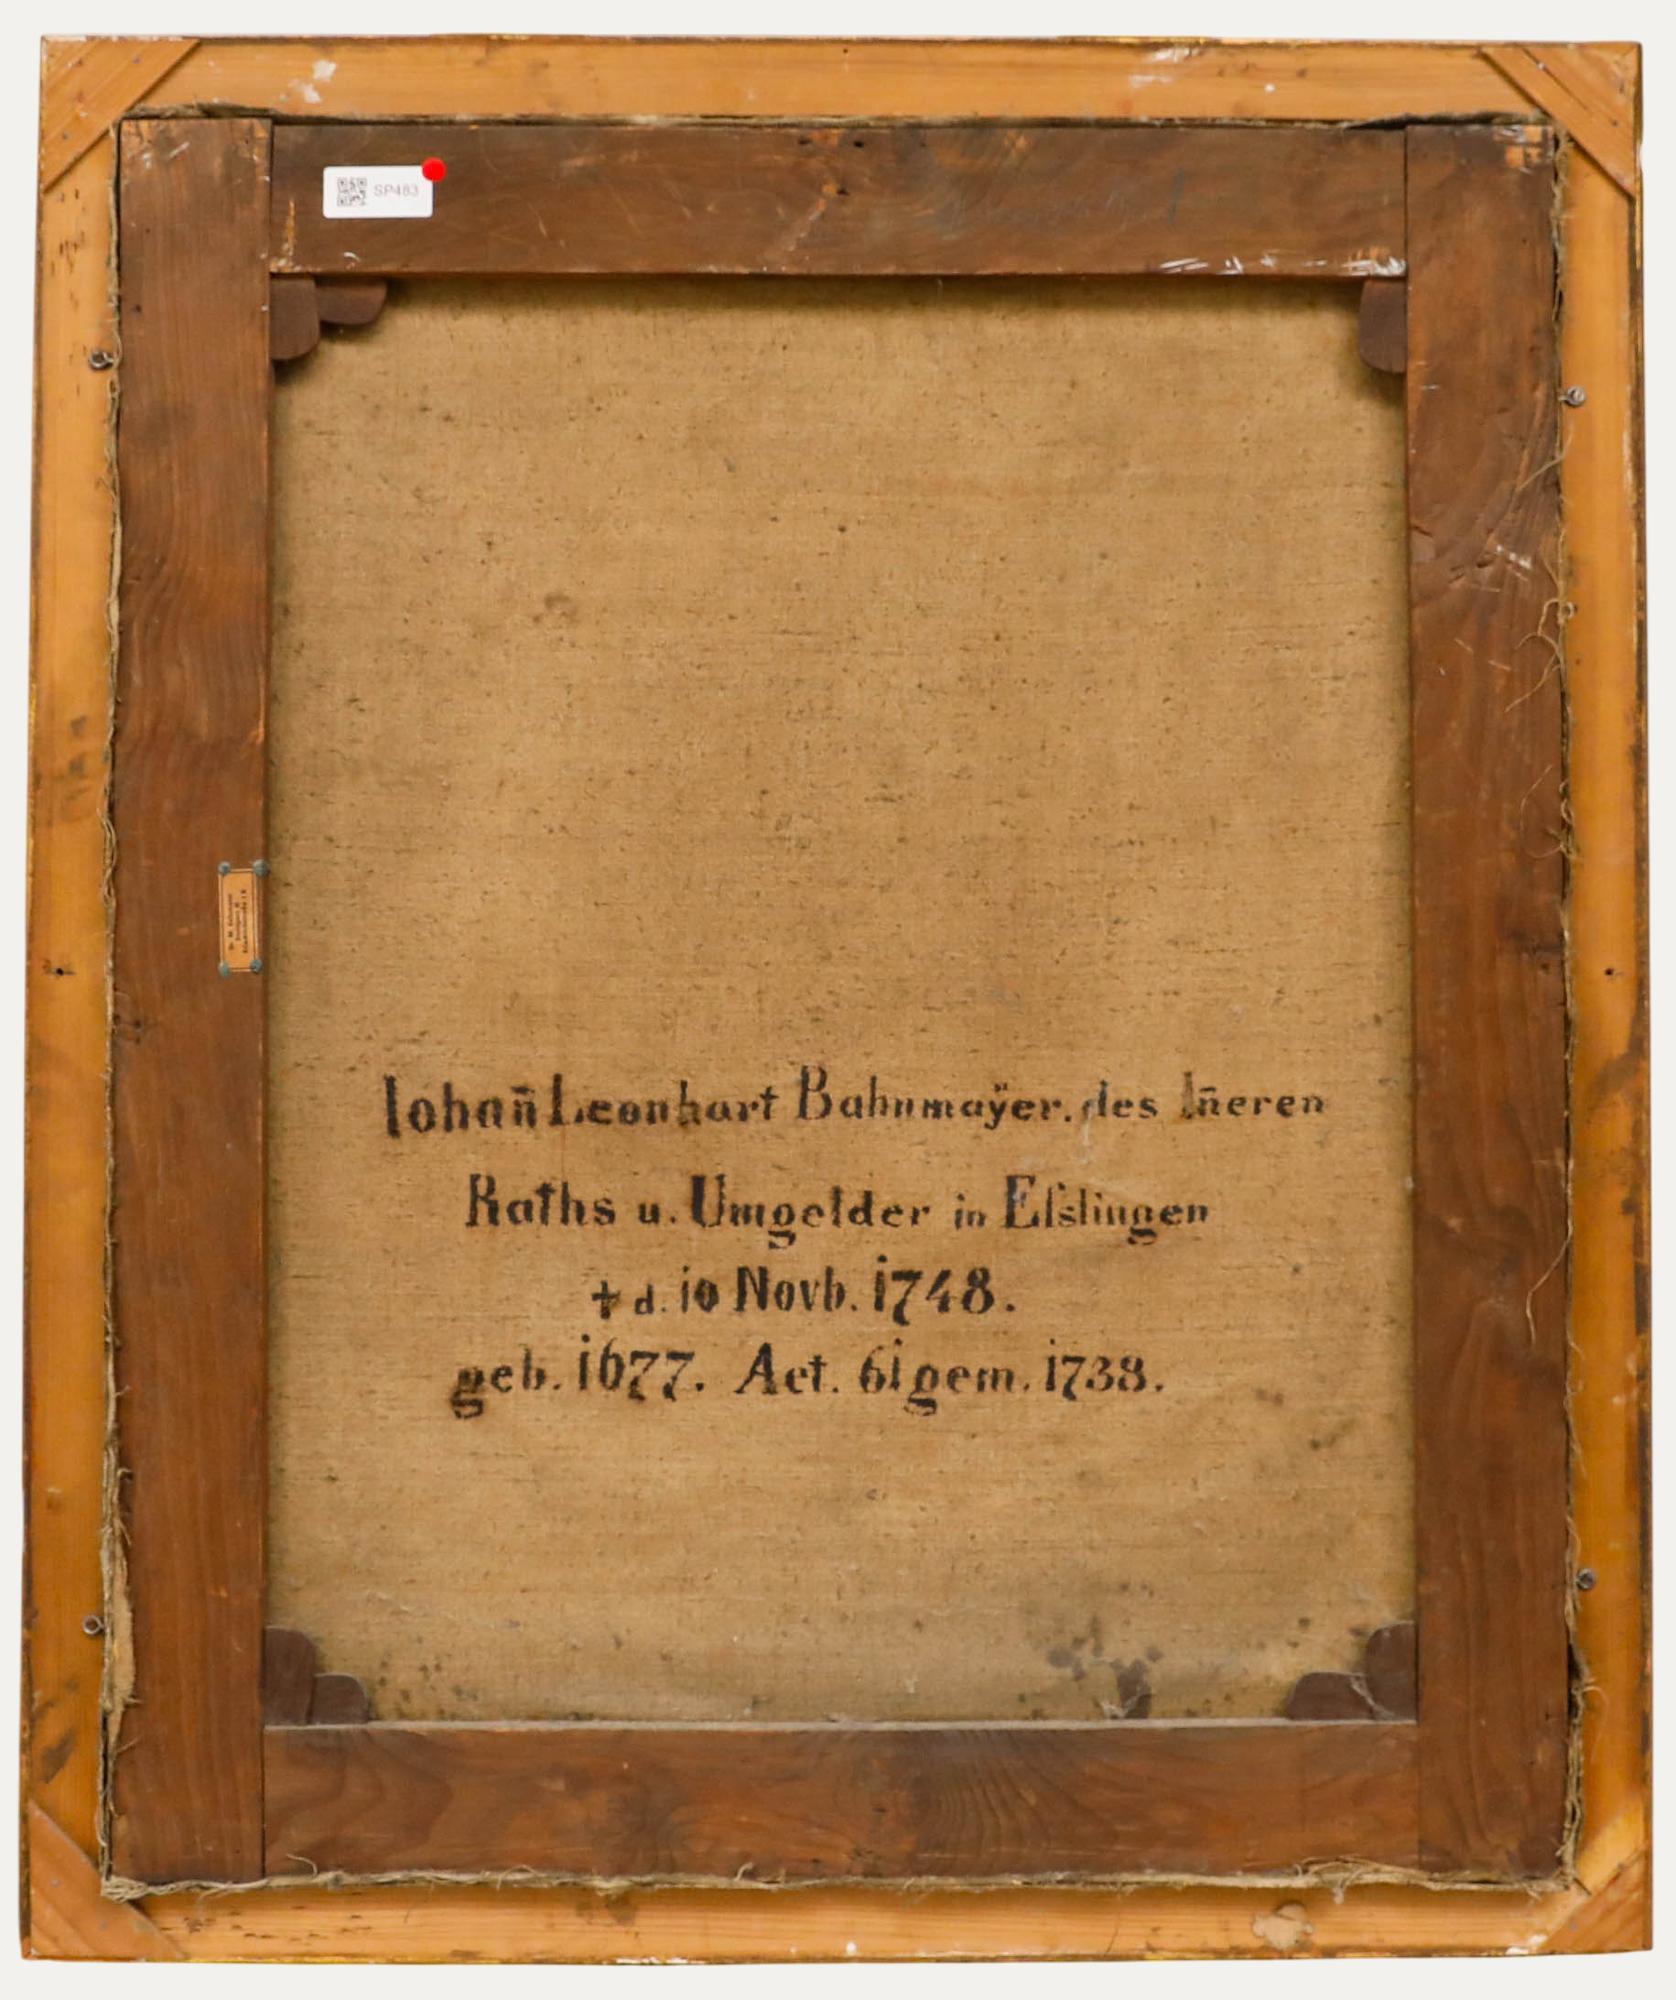 SP483
Iohan̄ Leonhart Bahnmaÿer. des In̄eren
Raths u. Umgelder in Eſslingen
† d. 10 Novb. 1748.
geb. 1677. Aet. 61 gem. 1738.